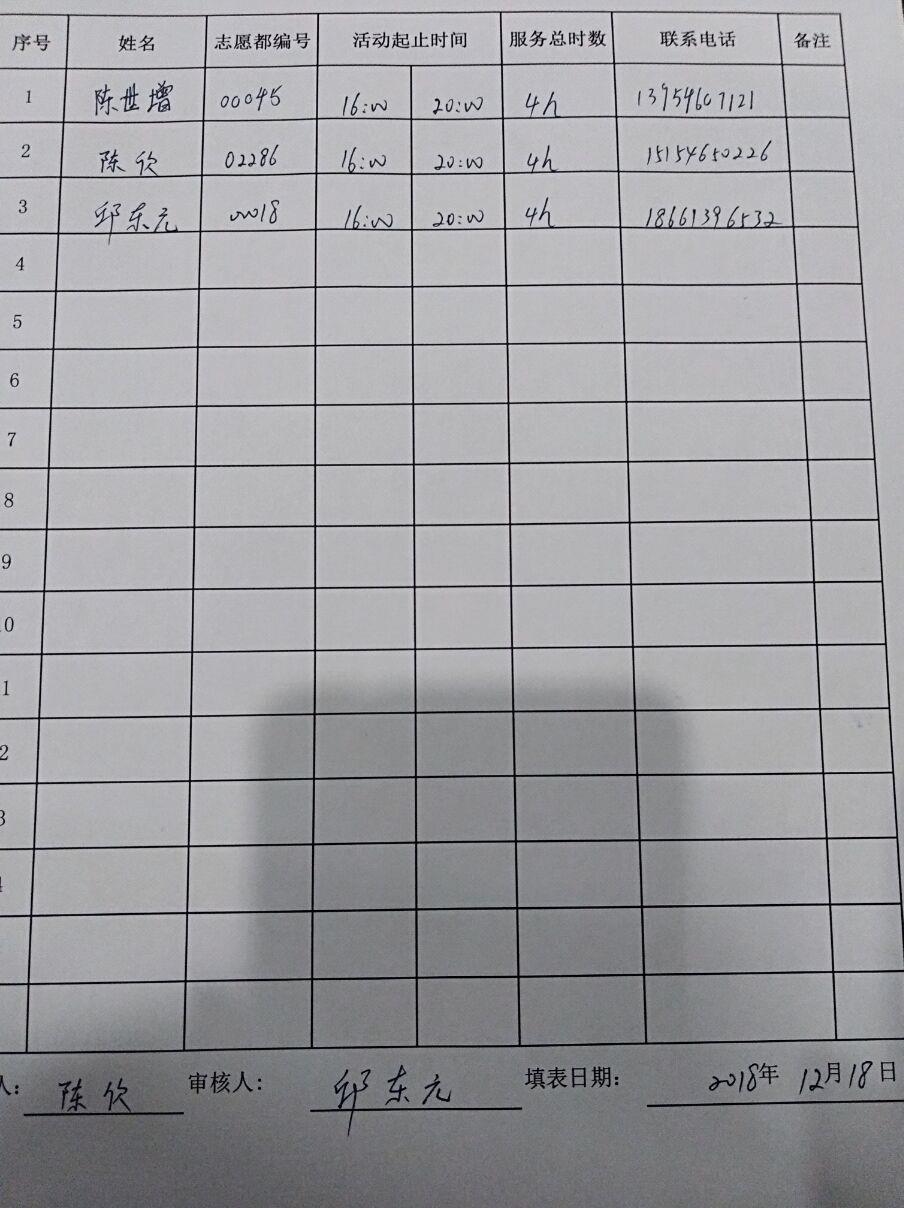 序号 姓名 志愿都编号 活动起止时间 服务总时数 联系电话 备注
1 陈世增 00045 16:00 20:00 4h 13954607121
2 陈欣 02286 16:00 20:00 4h 15154650226
3 邱东元 00018 16:00 20:00 4h 18661396532
4
5
6
7
8
9
0
1
2
3
4
人: 陈欣 审核人: 邱东元 填表日期: 2018年 12月18日